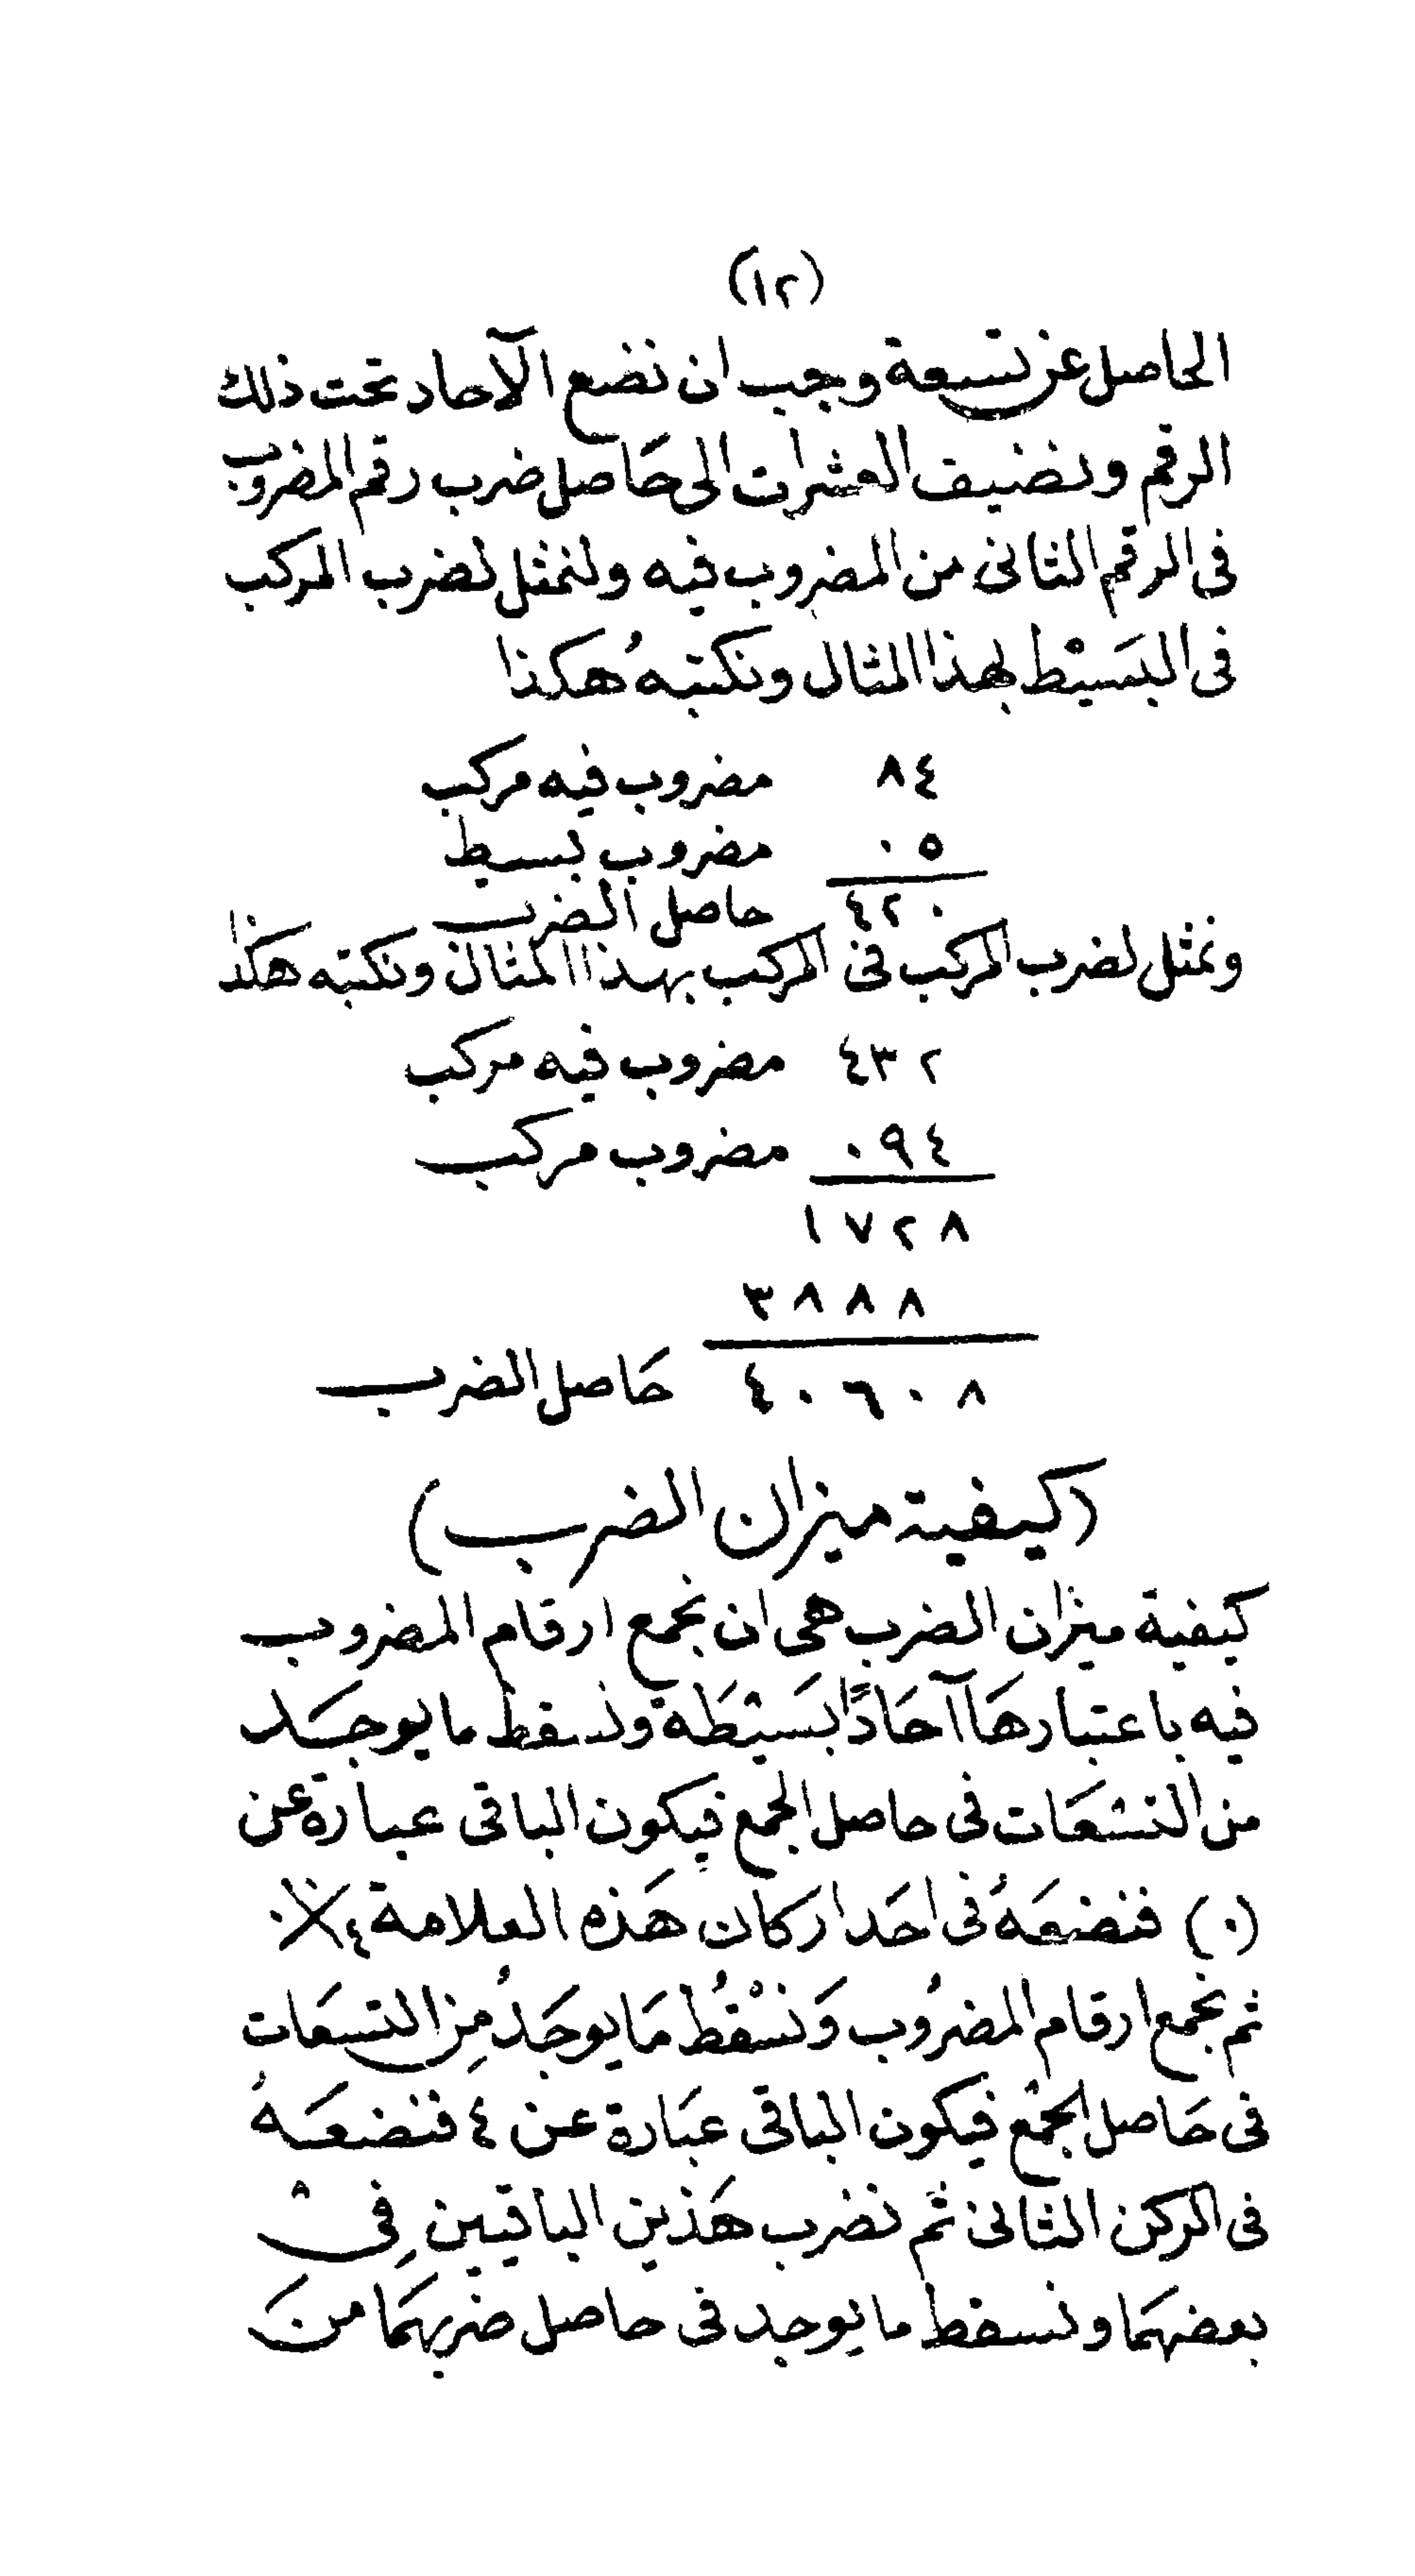 (١٢)
الحاصل عن تسعة وجب ان نضع الآحاد تحت ذلك
الرقم ونضيف العشرات الى حَاصل ضرب رقم المضروب
فى الرقم الثانى من المضروب فيه ولنمثل لضرب المركب
فى البَسيْط بهذا المثال ونكتبهُ هكذا
٨٤ مضروب فيه مركب
٠٥ مضروب بسيط
٤٢٠ حاصل الضرب
ونمثل لضرب المركب فى المركب بهذا المثال ونكتبه هكذا
٤٣٢ مضروب فيه مركب
٠٩٤ مضروب مركب
١٧٢٨
٣٨٨٨
٤٠٦٠٨ حَاصل الضرب
(كيفية ميزان الضرب)
كيفية ميزان الضرب هى ان نجمع ارقام المضروب
فيه باعتبارهَا آحَادًا بَسيْطَة ونسقط ما يوجَد
من التسعَات فى حاصل الجمع فيكون الباقى عبارة عن
(٠) فنضعَهُ فى احَد اركان هَذه العلامة ٤×٠
ثم نجمع ارقام المضرُوب وَنسْقُط مَا يوجَدُ مِن التسعَات
فى حَاصل الجمْع فيكون الباقى عبَارة عن ٤ فنضعَهُ
فى الركن الثانى ثم نضرب هَذين الباقيين فِى
بعضهمَا ونسقط ما يوجد فى حاصل ضربهمَا منَ